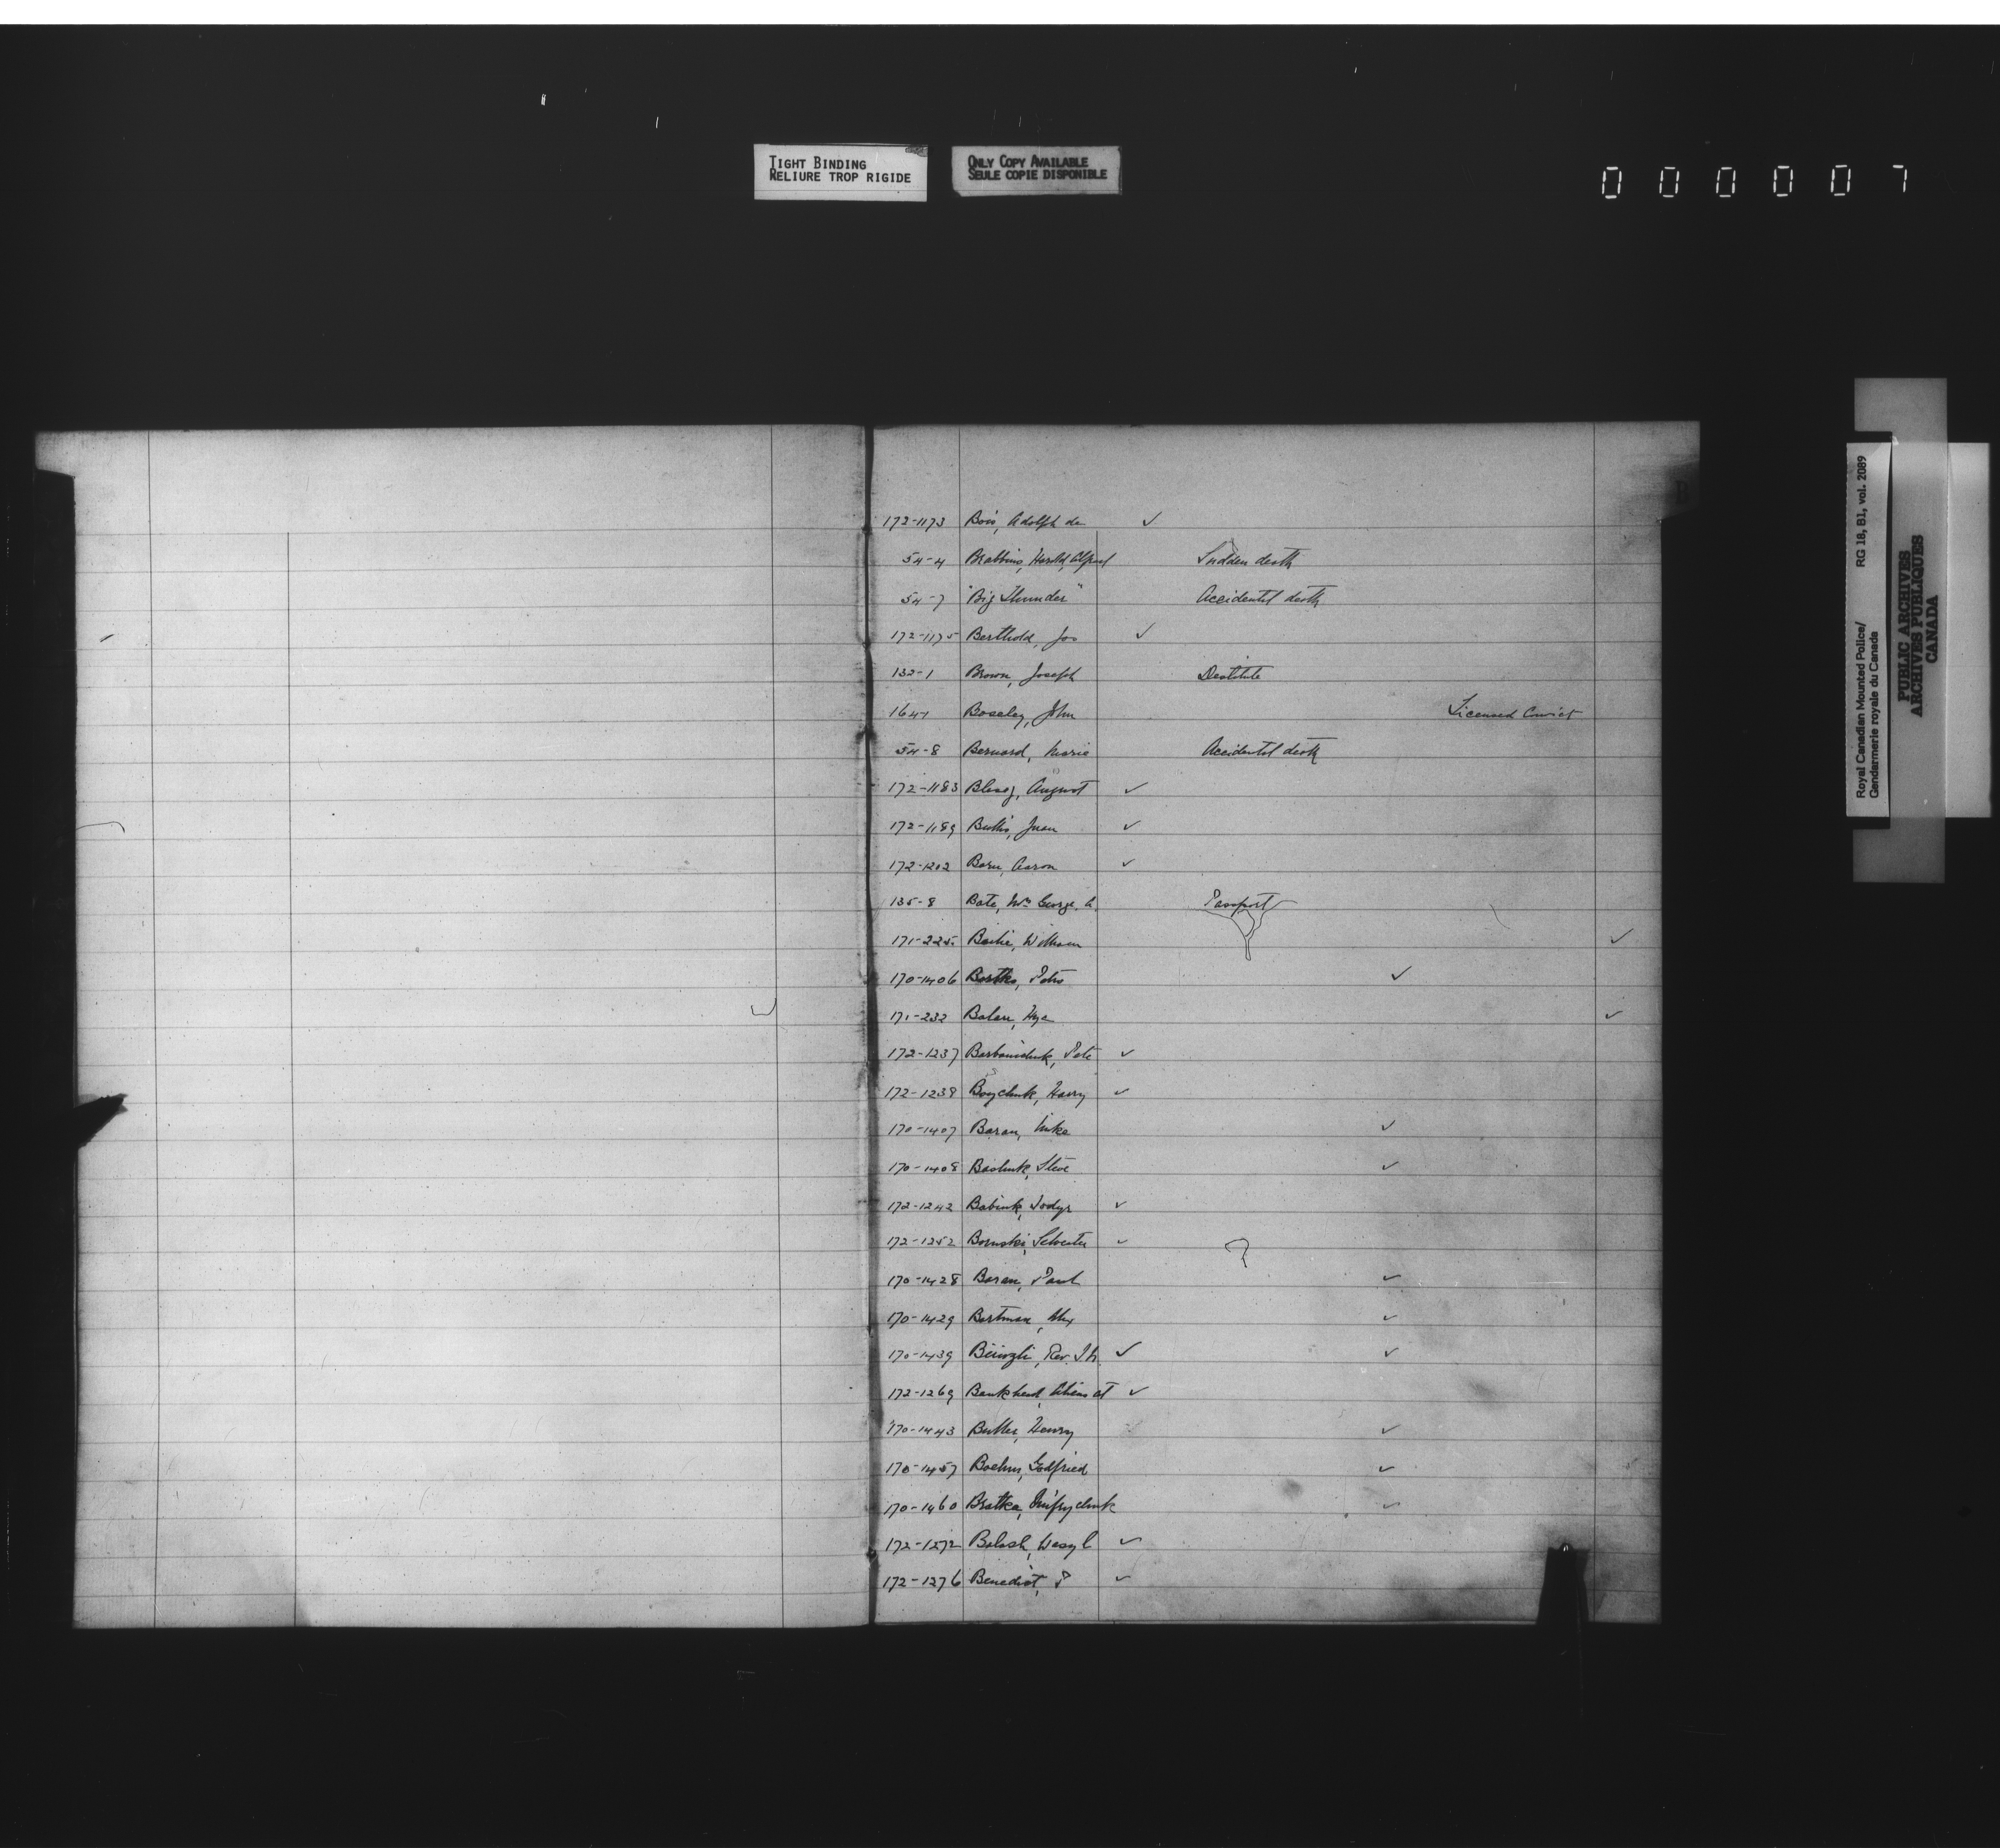 TIGHT BINDING
RELIURE TROP RIGIDE
ONLY COPY AVAILABLE
SEULE COPIE DISPONIBLE
000007
Royal Canadian Mounted Police/ RG 18, B1, vol. 2089
Gendarmerie royale du Canada
PUBLIC ARCHIVES
ARCHIVES PUBLIQUES
CANADA
B
172-1173 Bois, Adolph de ✓
54-4 Brabbins, Harold, Alfred Sudden death
54-7 "Big Thunder" Accidental death
172-1175 Berthold, Jos ✓
132-1 Brown, Joseph Destitute
164-1 Boseley, John Licensed Convict
54-8 Bernard, Marie Accidental death
172-1183 August ✓
172-1189 ✓
172-1202 Aaron ✓
135-8 Bate, Mrs George. A. Passport
171-225 Bailie, William ✓
170-1406 Bartko, Petro ✓
171-232 Balan, ✓
172-1237 Pete ✓
172-1239 Boychuk, Harry ✓
170-1407 Baran, Mike ✓
170-1408 Steve ✓
172-1242 Babiuk, ✓
172-1252 ✓
170-1428 Baran, Paul ✓
170-1429 Bartman, Alex ✓
170-1439 Rev. ✓ ✓
172-1269 Bankhead, Aliens at ✓
170-1443 Butler, Henry ✓
170-1457 Boehm, Godfried ✓
170-1460 Bratka, ✓
172-1272 Balash, Wasyl ✓
172-1276 Benedict, P ✓